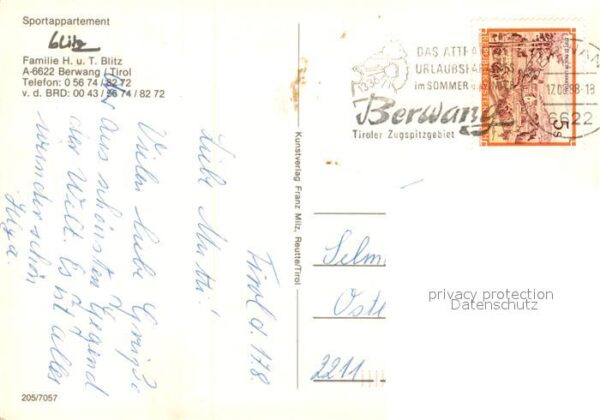 Sportappartement
blitz
Familie H. u. T. Blitz
A-6622 Berwang / Tirol
Telefon: 0 56 74 / 82 72
v. d. BRD: 00 43 / 56 74 / 82 72
Tirol d. 17.8.
Liebe Mutti!
Viele liebe Grüße
aus schönsten Gegend
der Welt. Es ist alles
wunderschön
Helga.
205/7057
Kunstverlag Franz Milz, Reutte/Tirol
DAS ATTRA
URLAUBS
im SOMMER u.
Berwang
Tiroler Zugspitzgebiet
17.08.88-18
6622
5s
REPUBLIK
Selm
Oste
2211
privacy protection
Datenschutz